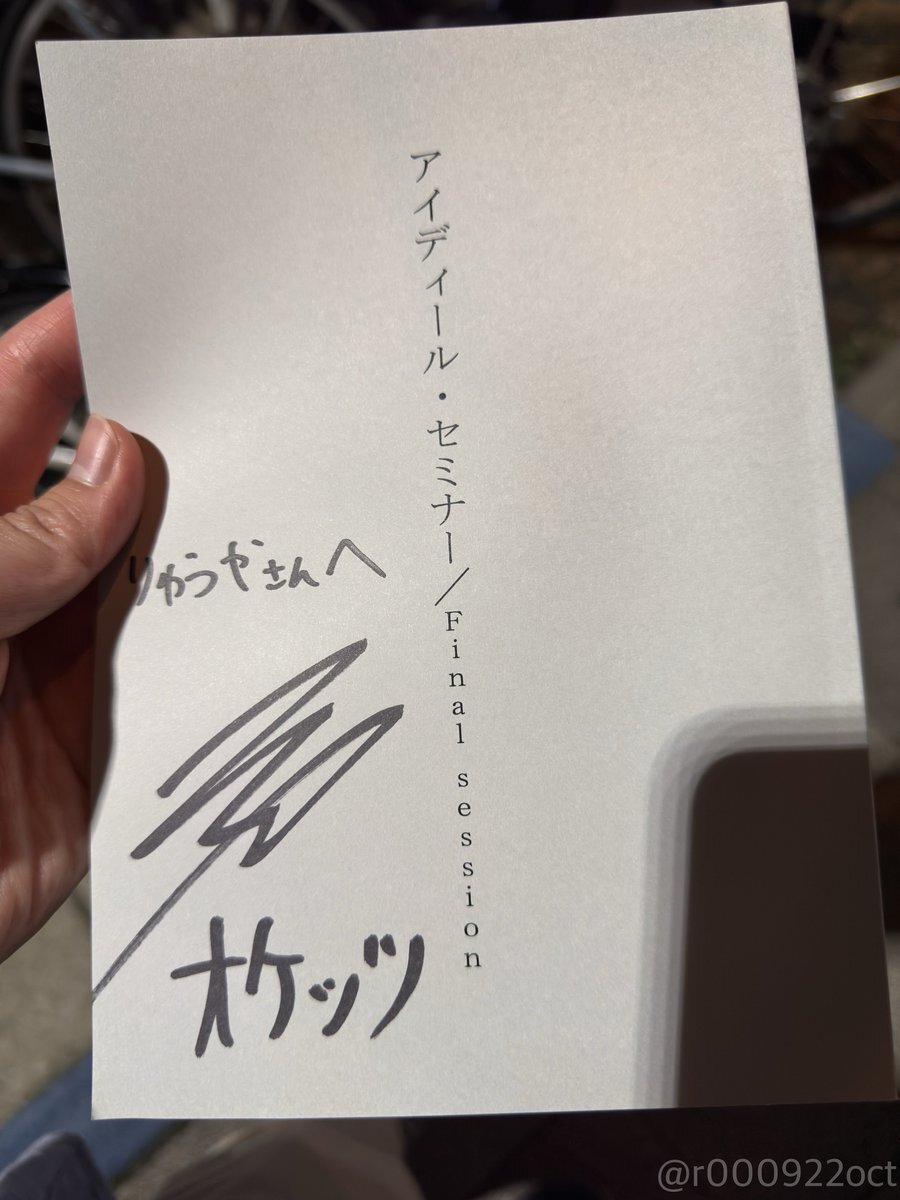 アイディール・セミナー／Final session
りゅうやさんへ
オケッツ
@r000922oct